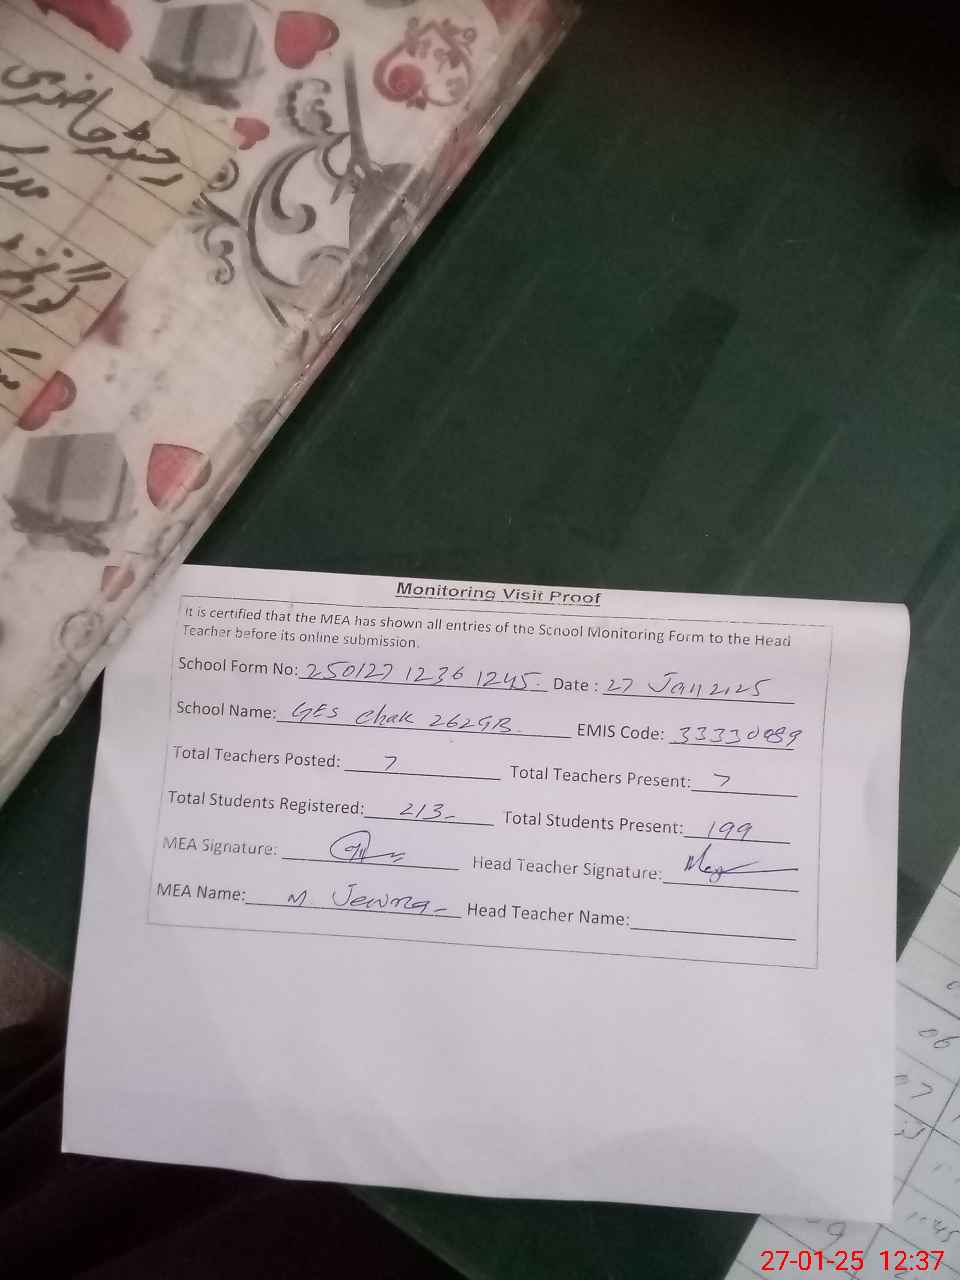 رجسٹر حاضری
Monitoring Visit Proof
It is certified that the MEA has shown all entries of the School Monitoring Form to the Head
Teacher before its online submission.
School Form No: 250127 1236 1245. Date : 27 Jan 2025
School Name: GES Chak 262GB. EMIS Code: 33330989
Total Teachers Posted: 7 Total Teachers Present: 7
Total Students Registered: 213 Total Students Present: 199
MEA Signature: Head Teacher Signature:
MEA Name: M Head Teacher Name:
06
07
27-01-25 12:37